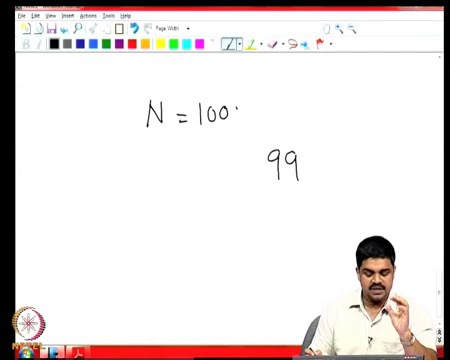 File Edit View Insert Actions Tools Help
Page Width
B
N = 100
99